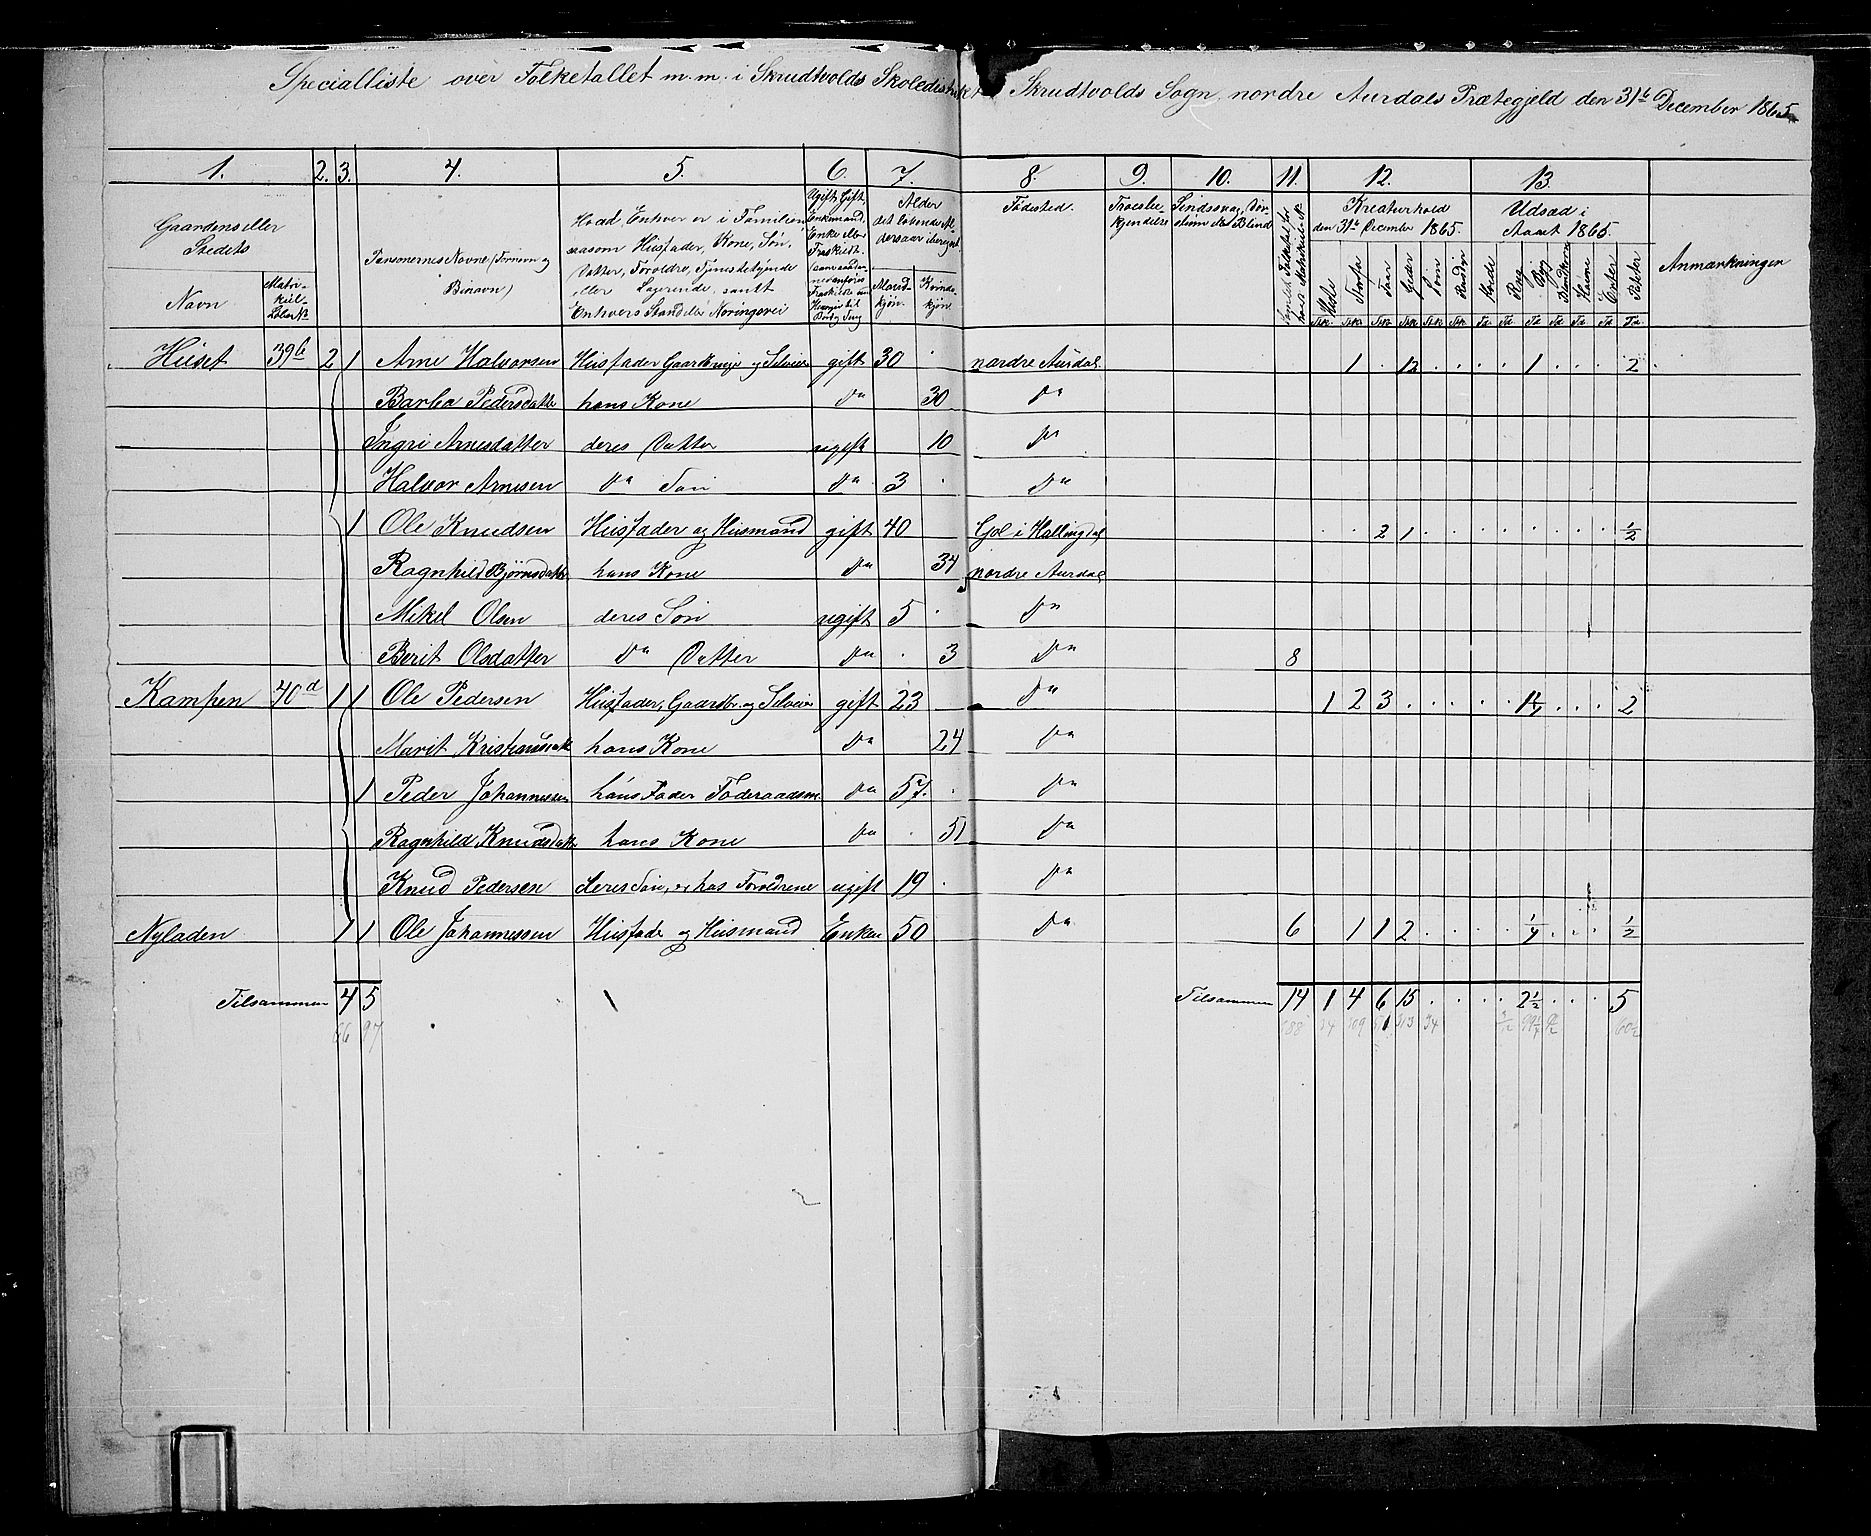 Specialliste over Folketallet m. m. i Skrudtvolds Skoledistrikt Skrudtvolds Sogn, nordre Aurdals Prætegjeld den 31te December 1865
1. 2. 3. 4. 5. 6. 7. 8. 9. 10. 11. 12. 13.
Gaardens eller Stedets
Navn
Matrikul-Løbe №
Personernes Navne (Fornavn og Binavn)
Hvad Enhver er i Familien saasom Husfader, Kone, Søn, Datter, Forældre, Tjenestetyende eller Logerende, samt Enhvers Stand eller Næringsvei
Ugift, Gift, Enkemand, Enke eller Fraskilt
Alder det løbende Aldersaar iberegnet
Mandkjøn. Kvindekjøn
Fødested.
Troesbekjendelse
Sindssvag, Døvstum eller Blind
Kreaturhold den 31te December 1865.
Heste Storfæ Faar Geder Sviin Rensdyr
Udsæd i Aaret 1865.
Hvede Rug Byg Blandkorn Havre Erter Poteter
Stk. Stk. Stk. Stk. Stk. Stk. Td. Td. Td. Td. Td. Td. Td.
Anmærkninger
Huset 39b 2 1 Arne Halvorsen Husfader Gaardbruger og Selveier gift 30 . nordre Aurdal 1 . 12 . . . . 1 . . . 2 .
Barbo Pedersdatter hans Kone Do 30 Do
Ingri Arnesdatter deres Datter ugift 10 Do
Halvor Arnesen Do Søn Do 3 . Do
1 Ole Knudsen Husfader og Husmand gift 40 Gol i Hallingdal . . 2 1 . . . . . . . . 1/2
Ragnhild Bjørnsdatter hans Kone Do 34 nordre Aurdal
Mikel Olsen deres Søn ugift 5 . Do
Berit Olsdatter Do Datter Do . 3 Do 8
Kampen 40d 1 1 Ole Pedersen Husfader, Gaardbr. og Selveier gift 23 Do 1 2 3 . . . . . 1 1/4 . . . 2
Marit Kristiansdatt hans Kone Do 24 Do
1 Peder Johannessen hans Fader Føderaadsm. Do 57. . Do
Ragnhild Knudsdatt hans Kone Do . 51 Do
Knud Pedersen deres Søn, er hos Forældrene ugift 19 . Do
Nyladen 1 1 Ole Johannessen Husfader og Husmand Enkem 50 Do 6 1 1 2 . . . . 1/4 . . . 1/2
Tilsammen 4 5 Tilsammen 14 1 4 6 15 . . . . 2 1/2 . . . 5
66 97